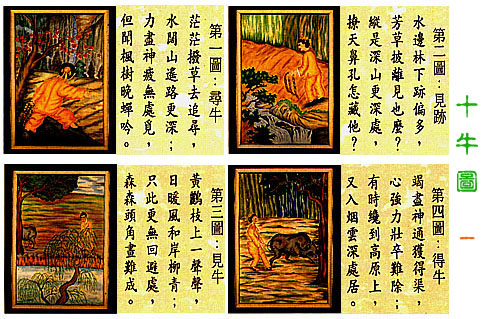 十牛圖 一
第一圖：尋牛
茫茫撥草去追尋，
水闊山遙路更深；
力盡神疲無處覓，
但聞楓樹晚蟬吟。
第二圖：見跡
水邊林下跡偏多，
芳草披離見也麼？
縱是深山更深處，
撩天鼻孔怎藏他？
第三圖：見牛
黃鸝枝上一聲聲，
日暖風和岸柳青；
只此更無回避處，
森森頭角畫難成。
第四圖：得牛
竭盡神通獲得渠，
心強力壯卒難除；
有時纔到高原上，
又入烟雲深處居。